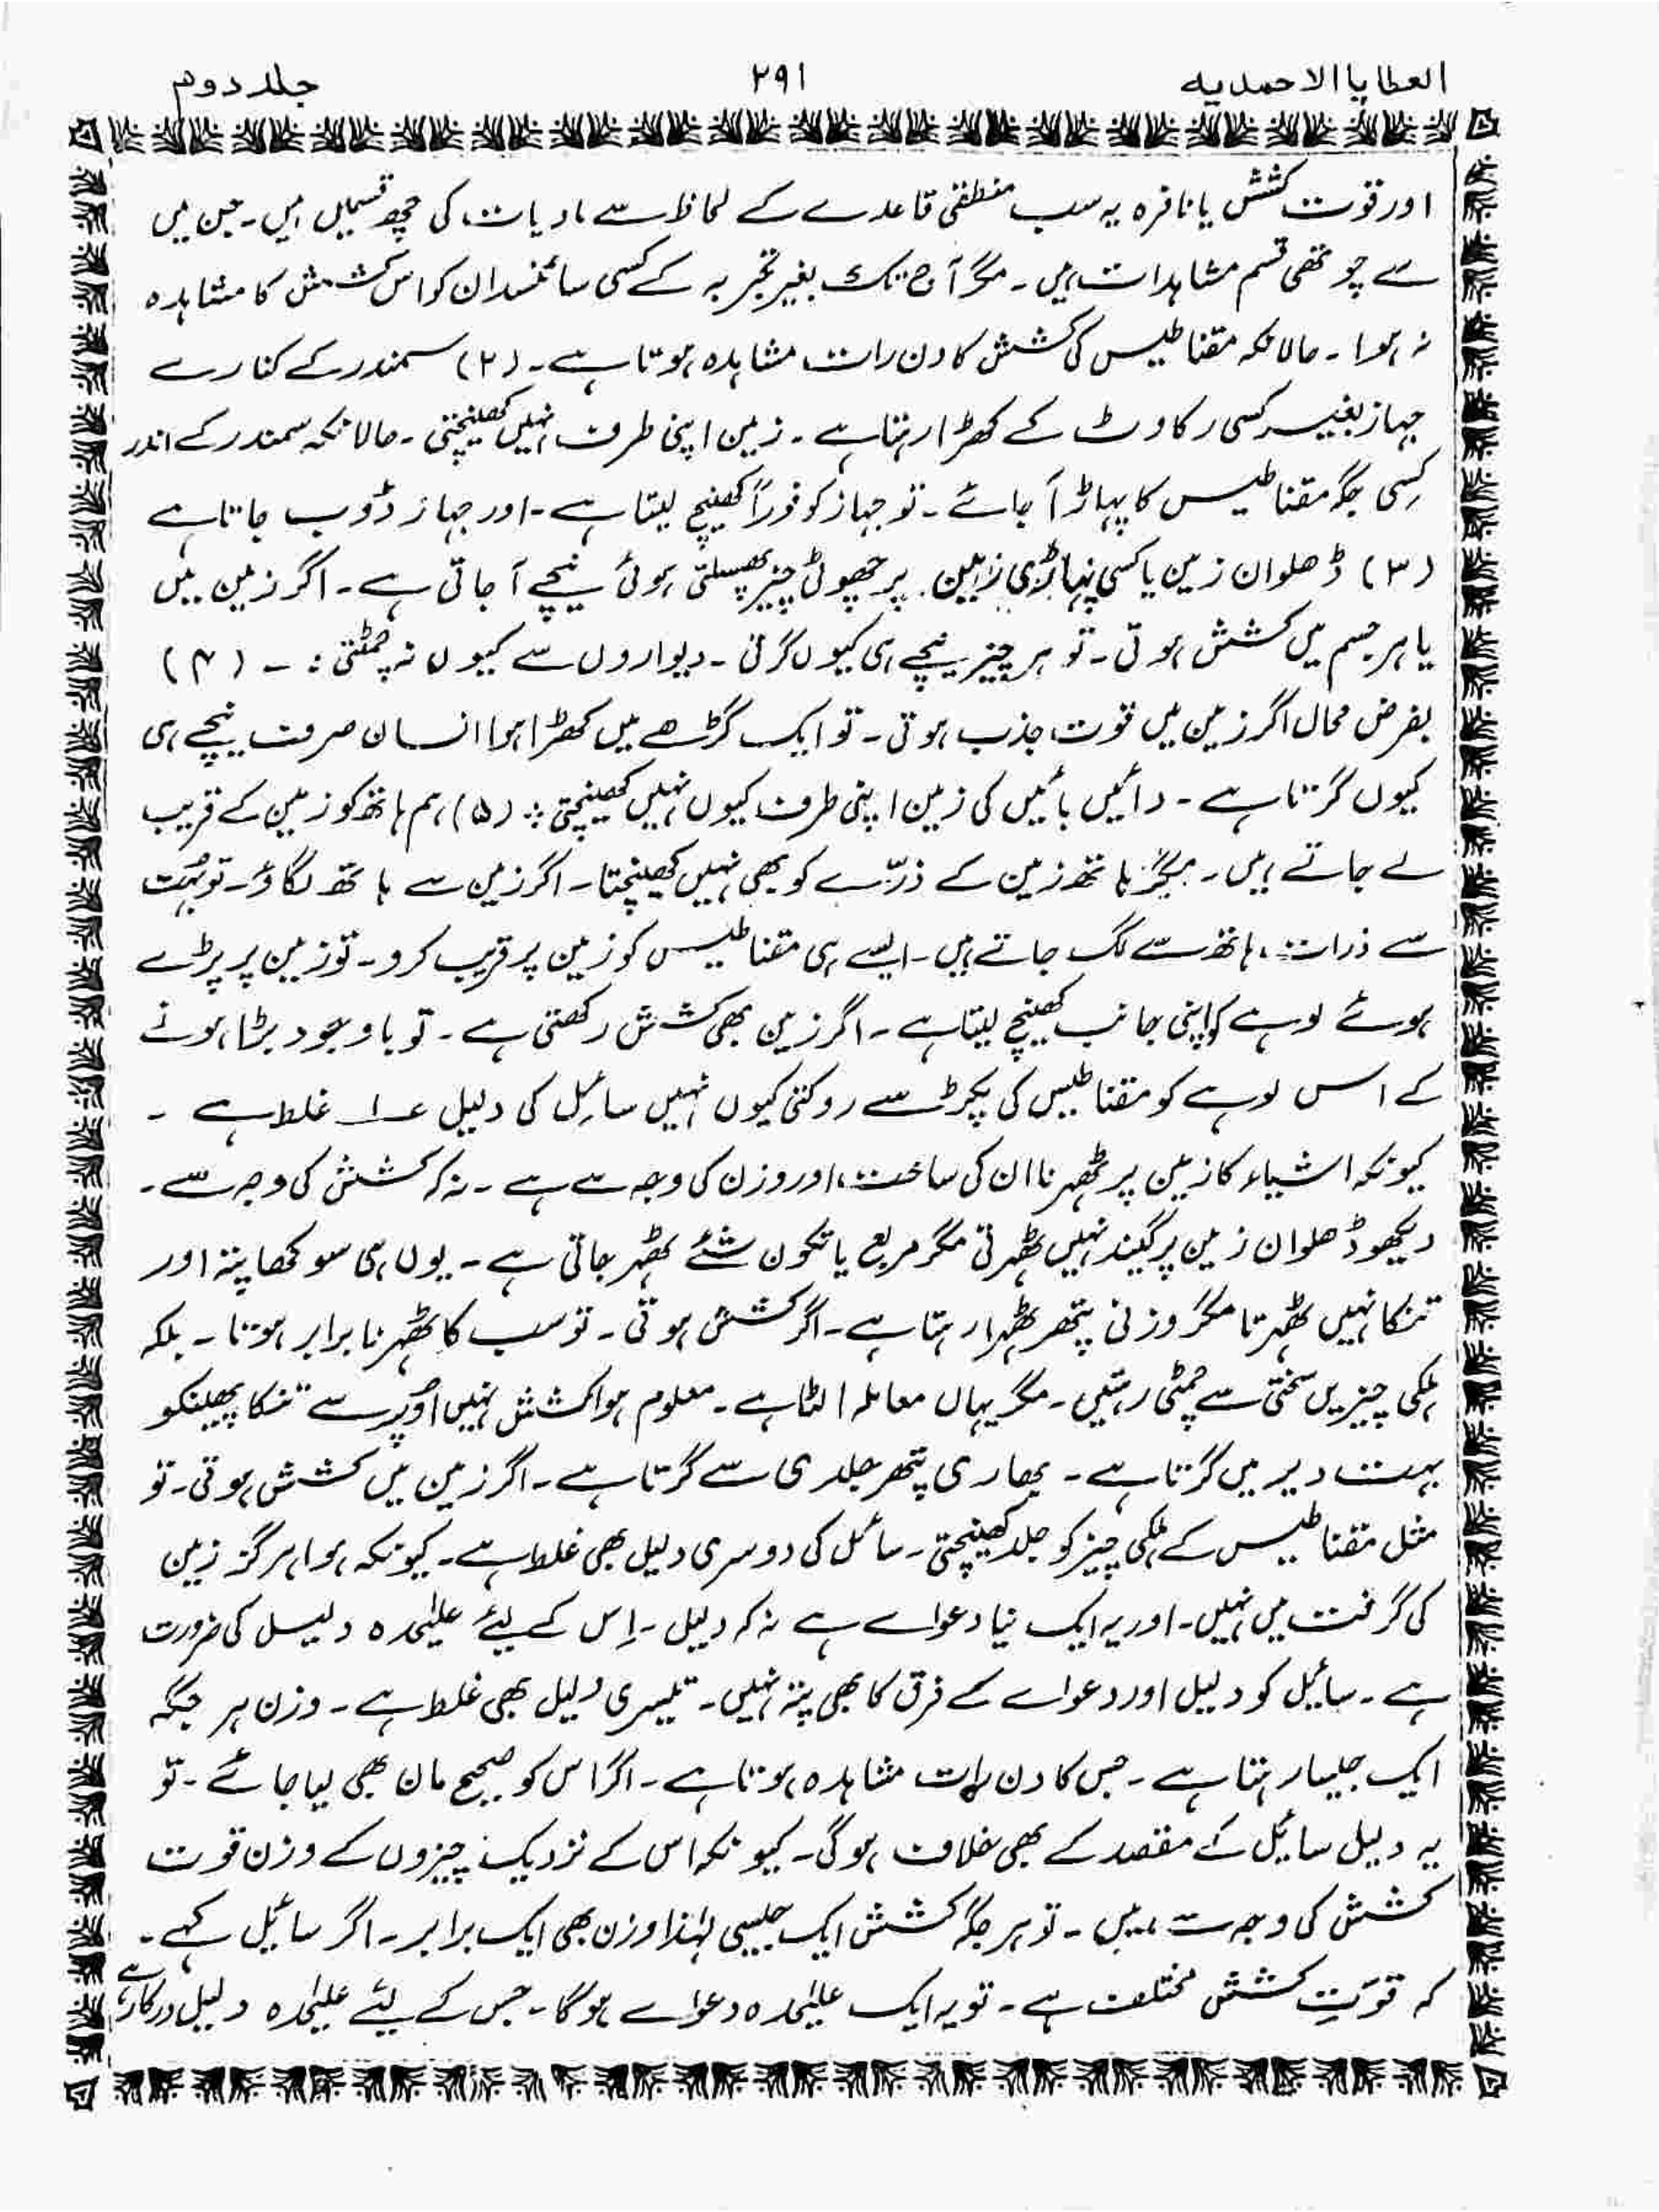 العطایا الاحمدیه ۲۹۱ جلد دوم
اور قوت کشش یا نافرہ یہ سب منطقی قاعدے کے لحاظ سے مادیات کی چھ قسمیں ہیں۔ جن میں
سے چوتھی قسم مشاہدات ہیں۔ مگر آج تک بغیر تجربہ کے کسی سائنسدان کو اس کشش کا مشاہدہ
نہ ہوا۔ حالانکہ مقناطیس کی کشش کا دن رات مشاہدہ ہوتا ہے۔ (۲) سمندر کے کنارے
جہاز بغیر کسی رکاوٹ کے کھڑا رہتا ہے۔ زمین اپنی طرف نہیں کھینچتی۔ حالانکہ سمندر کے اندر
کِسی جگہ مقناطیس کا پہاڑ آ جائے۔ تو جہاز کو فوراً کھینچ لیتا ہے۔ اور جہاز ڈوب جاتا ہے
(۳) ڈھلوان زمین یا کسی پہاڑی زمین پر چھوٹی چیز پھسلتی ہوئی نیچے آ جاتی ہے۔ اگر زمین میں
یا ہر جسم میں کشش ہوتی۔ تو ہر چیز نیچے ہی کیوں گرتی۔ دیواروں سے کیوں نہ چمٹتی :۔ (۴)
بفرض محال اگر زمین میں قوت جذب ہوتی۔ تو ایک گڑھے میں کھڑا ہوا انسان صرف نیچے ہی
کیوں گرتا ہے۔ دائیں بائیں کی زمین اپنی طرف کیوں نہیں کھینچتی ؞ (۵) ہم ہاتھ کو زمین کے قریب
لے جاتے ہیں۔ مگر ہاتھ زمین کے ذرّے کو بھی نہیں کھینچتا۔ اگر زمین سے ہاتھ لگاؤ۔ تو بہُت
سے ذرات، ہاتھ سے لگ جاتے ہیں۔ ایسے ہی مقناطیس کو زمین پر قریب کرو۔ تو زمین پر پڑے
ہوئے لوہے کو اپنی جانب کھینچ لیتا ہے۔ اگر زمین بھی کشش رکھتی ہے۔ تو باوجود بڑا ہونے
کے اس لوہے کو مقناطیس کی پکڑ سے روکتی کیوں نہیں سائل کی دلیل ؏۱ غلط ہے۔
کیونکہ اشیاء کا زمین پر ٹھہرنا ان کی ساخت، اور وزن کی وجہ سے ہے۔ نہ کہ کشش کی وجہ سے۔
دیکھو ڈھلوان زمین پر گیند نہیں ٹھہرتی مگر مربع یا تکون شئے ٹھہر جاتی ہے۔ یوں ہی سوکھا پتہ اور
تنکا نہیں ٹھہرتا مگر وزنی پتھر ٹھہرا رہتا ہے۔ اگر کشش ہوتی۔ تو سب کا ٹھہرنا برابر ہوتا۔ بلکہ
ہلکی چیزیں سختی سے چمٹی رہتیں۔ مگر یہاں معاملہ الٹا ہے۔ معلوم ہوا کشش نہیں اوُپر سے تنکا پھینکو
بہت دیر میں گرتا ہے۔ بھاری پتھر جلدی سے گرتا ہے۔ اگر زمین میں کشش ہوتی۔ تو
مثل مقناطیس کے ہلکی چیز کو جلد کھینچتی۔ سائل کی دوسری دلیل بھی غلط ہے۔ کیونکہ ہوا ہرگز زمین
کی گرفت میں نہیں۔ اور یہ ایک نیا دعواے ہے نہ کہ دلیل۔ اِس کے لیئے علیٰحدہ دلیل کی ضرورت
ہے۔ سائیل کو دلیل اور دعواے کے فرق کا بھی پتہ نہیں۔ تیسری دلیل بھی غلط ہے۔ وزن ہر جگہ
ایک جیسا رہتا ہے۔ جس کا دن رات مشاہدہ ہوتا ہے۔ اگر اس کو صحیح مان بھی لیا جائے۔ تو
یہ دلیل سائیل کے مقصد کے بھی خلاف ہو گی۔ کیونکہ اس کے نزدیک چیزوں کے وزن قوت
کشش کی وجہ سے ہیں۔ تو ہر جگہ کشش ایک جیسی لہٰذا وزن بھی ایک برابر۔ اگر سائیل کہے۔
کہ قوّتِ کشش مختلف ہے۔ تو یہ ایک علیٰحدہ دعواے ہو گا۔ جس کے لیئے علیٰحدہ دلیل درکار ہے